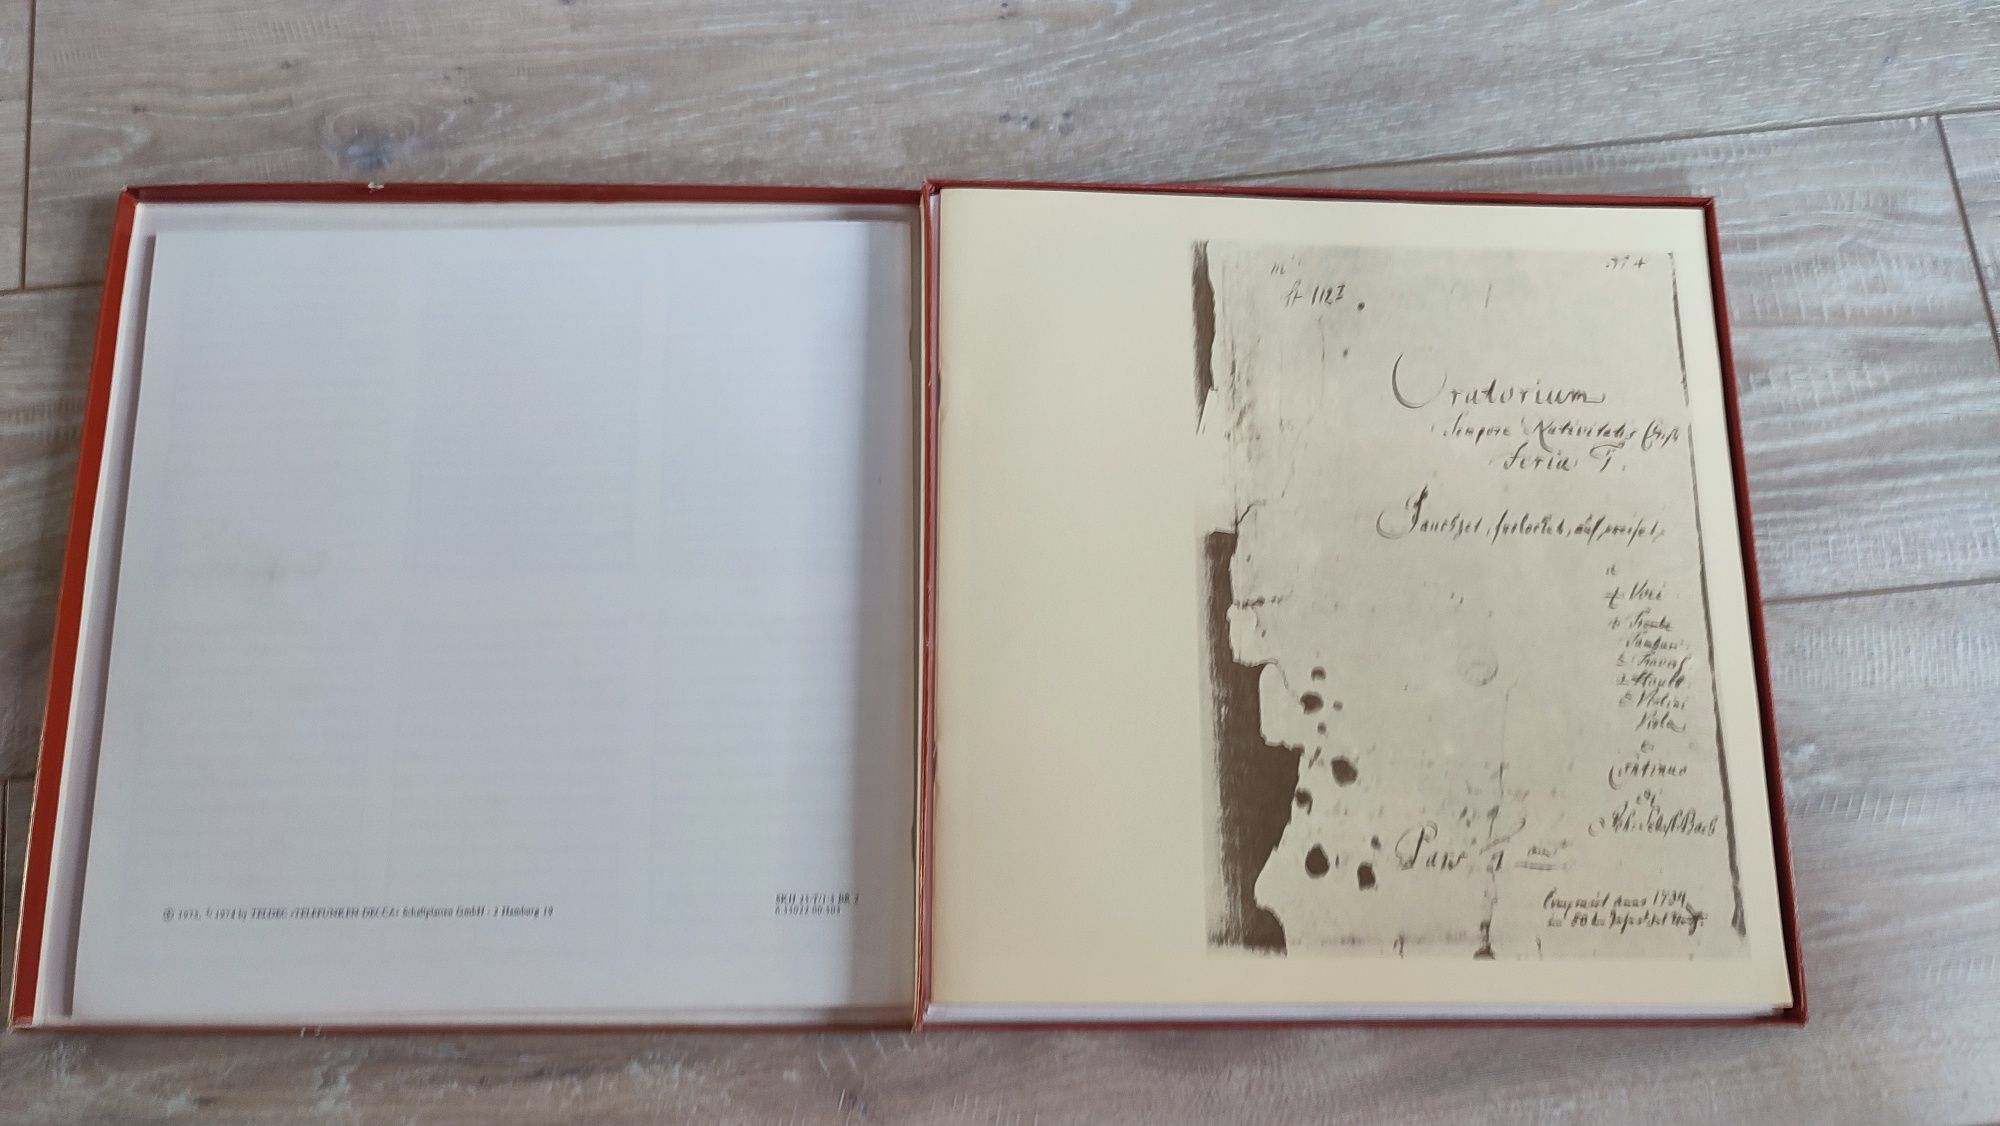 ℗ 1973, 1974 by TELDEC »TELEFUNKEN-DECCA« Schallplatten GmbH · 2 Hamburg 19
SKH 25/T/1-3
6.35022 00 503
№ 4
St 112 I
Oratorium
Tempore Nativitatis Christi
Feria I.
Jauchzet, frolocket, auf, preiset
4 Voci
3 Trombe
Tamburi
2 Travers
2 Hautb
2 Violini
Viola
e
Continuo
di
Joh: Sebast: Bach
Pars I
Anno 1734